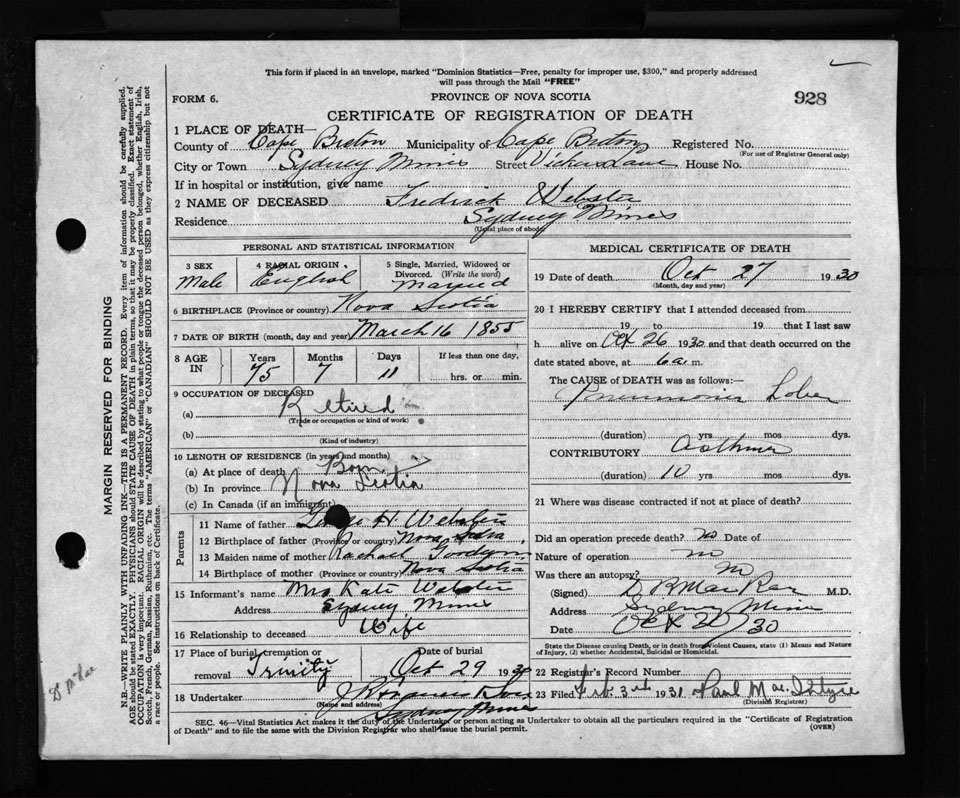 This form if placed in an envelope, marked "Dominion Statistics—Free, penalty for improper use, $300," and properly addressed
will pass through the Mail "FREE"
FORM 6.
PROVINCE OF NOVA SCOTIA
928
CERTIFICATE OF REGISTRATION OF DEATH
1 PLACE OF DEATH—
County of Cape Breton Municipality of Cape Breton Registered No.
(For use of Registrar General only)
City or Town Sydney Mines Street Vickers Lane House No.
If in hospital or institution, give name
2 NAME OF DECEASED Frederick Webster
Residence Sydney Mines
(Usual place of abode)
PERSONAL AND STATISTICAL INFORMATION
3 SEX
Male
4 RACIAL ORIGIN
English
5 Single, Married, Widowed or
Divorced. (Write the word)
Married
6 BIRTHPLACE (Province or country) Nova Scotia
7 DATE OF BIRTH (month, day and year) March 16 1855
8 AGE IN
Years Months Days If less than one day,
75 7 11 hrs. or min.
9 OCCUPATION OF DECEASED
(a) Retired
(Trade or occupation or kind of work)
(b)
(Kind of industry)
10 LENGTH OF RESIDENCE (in years and months)
(a) At place of death Born
(b) In province Nova Scotia
(c) In Canada (if an immigrant)
Parents
11 Name of father H. Webster
12 Birthplace of father (Province or country) Nova Scotia
13 Maiden name of mother Rachael
14 Birthplace of mother (Province or country) Nova Scotia
15 Informant's name Mrs Kate Webster
Address Sydney Mines
16 Relationship to deceased Wife
17 Place of burial, cremation or
removal Trinity
Date of burial
Oct 29 1930
18 Undertaker
(Name and address)
Sydney Mines
MEDICAL CERTIFICATE OF DEATH
19 Date of death Oct 27 1930
(Month, day and year)
20 I HEREBY CERTIFY that I attended deceased from
19 to 19 that I last saw
h alive on Oct 26 1930 and that death occurred on the
date stated above, at 6 a m.
The CAUSE of DEATH was as follows:
Pneumonia Lobar
(duration) yrs mos dys.
CONTRIBUTORY Asthma
(duration) 10 yrs mos dys.
21 Where was disease contracted if not at place of death?
Did an operation precede death? no Date of
Nature of operation no
Was there an autopsy? no
(Signed) D R MacRae M.D.
Address Sydney Mines
Date Oct /30
State the Disease causing Death, or in death from Violent Causes, state (1) Means and Nature
of Injury, (2) whether Accidental, Suicidal or Homicidal.
22 Registrar's Record Number
23 Filed Feb. 3rd 1931 Paul MacIntyre
(Division Registrar)
SEC. 46—Vital Statistics Act makes it the duty of the Undertaker or person acting as Undertaker to obtain all the particulars required in the "Certificate of Registration
of Death" and to file the same with the Division Registrar who shall issue the burial permit.
(OVER)
MARGIN RESERVED FOR BINDING
N.B.—WRITE PLAINLY WITH UNFADING INK—THIS IS A PERMANENT RECORD. Every item of information should be carefully supplied.
AGE should be stated EXACTLY. PHYSICIANS should STATE CAUSE OF DEATH in plain terms, so that it may be properly classified. Exact statement of
OCCUPATION is very important. RACIAL ORIGIN will be described by stating to what people or tongue the deceased person belonged, whether English, Irish,
Scotch, French, German, Russian, Ruthenian, etc. The terms "AMERICAN" or "CANADIAN" SHOULD NOT BE USED as they express citizenship but not
a race or people. See instructions on back of Certificate.